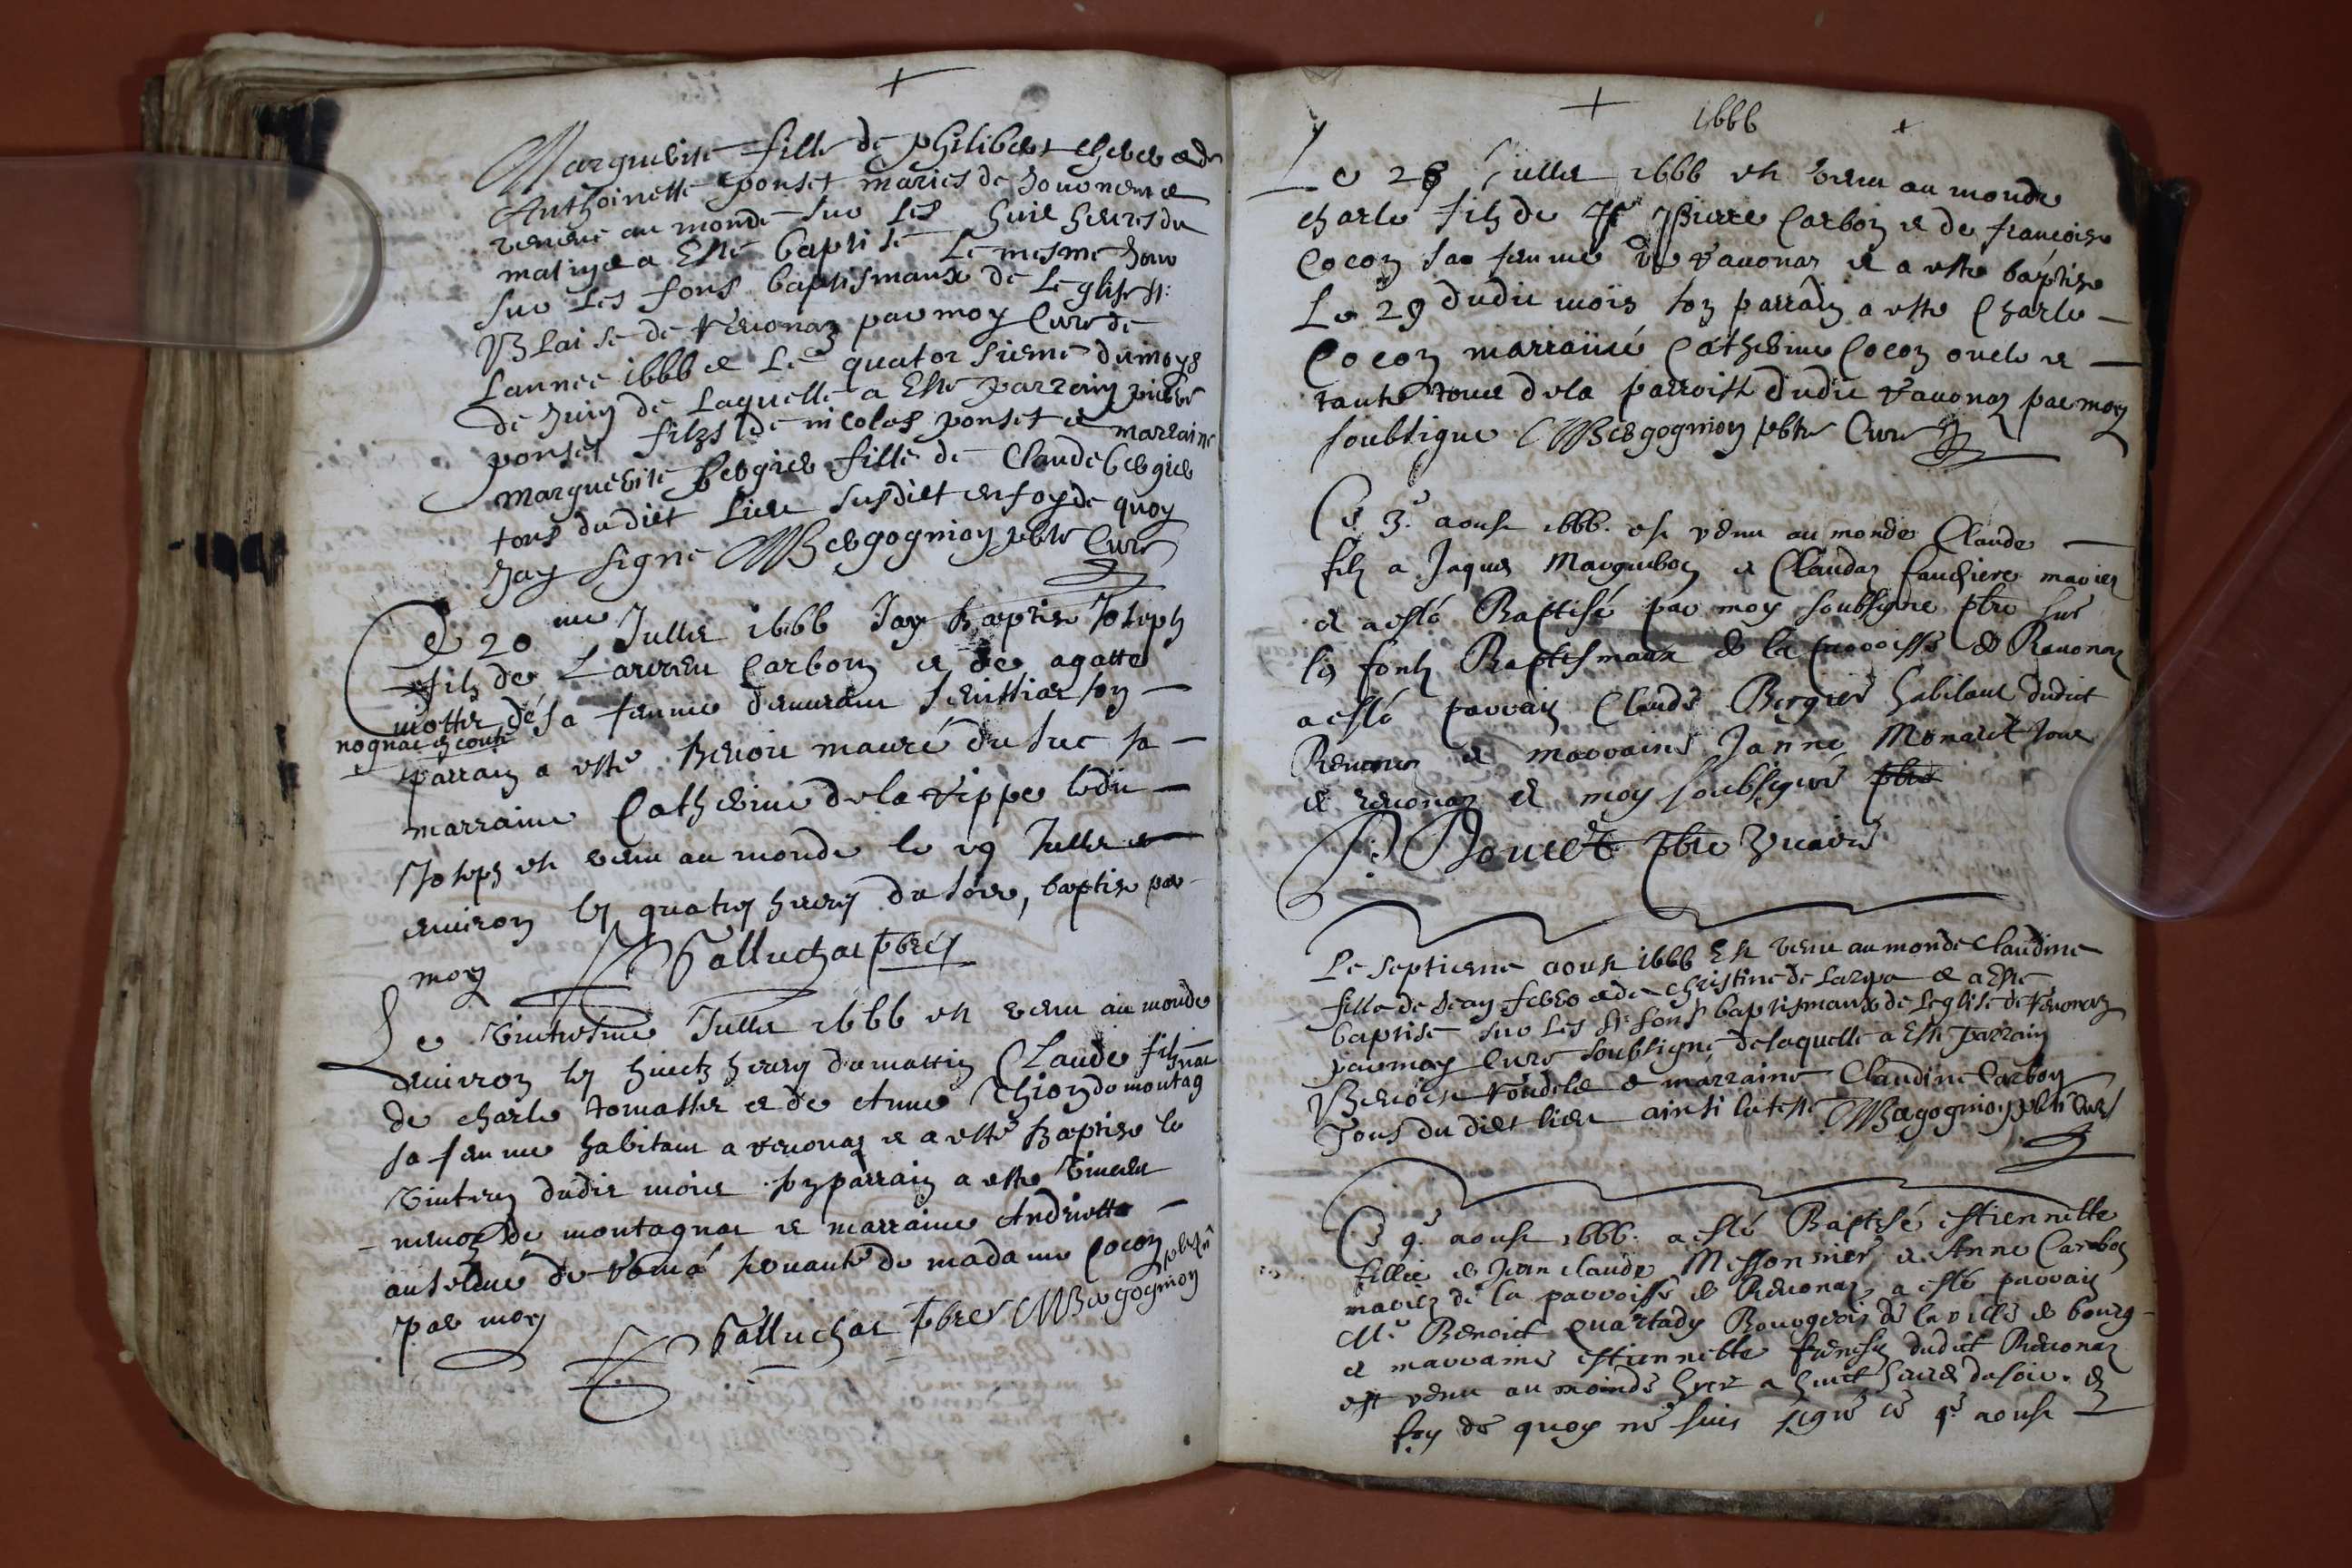 Marguerite fille de philibert et de
Anthoinette ponset mariés de
venue au monde sur les huit heures du
matin et a Esté baptisé le mesme Jour
sur les fons baptismaux de Leglise St
Blaise de Revonaz par moy Curé de
Lannee 1666 et Le quatorsieme du moys
de Juin de Laquelle a Este parrain pierre
ponset filz de nicolas ponset et marraine
marguerite bergier fille de Claude bergier
tous dudict Lieu susdict en foy de quoy
Jay signé MBergognion pbre Curé
Ce 20me Jullet 1666 Jay baptise Joseph
filz de Carbon et de agatte
sa femme son
parrain a esté Benoit du suc sa
marraine Catherine dela ledit
Joseph est venu au monde le 19 Jullet
environ les quatres heures du soir, baptise par
moy palluchat pbre
Le Jullet 1666 est venu au monde
environ les huict heures du mattin Claude filz
de charle tomasset et de Anne Chion de montag
nat
sa femme habitant a revonaz et a esté Baptise le
dudit mois son parrain a este Vincent
de montagnat et marraine Andriette
servante de madame Cocon
par moy palluchat pbre MBergognion pbre

+ 1666 +
Le 28 Jullet 1666 est venu au monde
charle filz de Sr Pierre Carbon et de francoise
Cocon sa femme de Ravonas et a este baptise
Le 29 dudit mois son parrain a este Charle
Cocon marraine Catherine Cocon oncle et
tante tous dela parroisse dudit Ravonaz par moy
soubsigne MBergognion pbre Curé
Ce 3e aoust 1666. est venu au monde Claude
filz a Jaques Marguibon et Claudaz mariez
et a esté Baptisé par moy soubsigné pbre sur
les fontz Baptismaux de la parroisse de Revonaz
a esté parrain Claude Bergier habitant dudict
Revonaz et marraine Janne Monaret tous
de revonaz et moy soubsigné pbre
P. Bouret pbre vicaire
Le septieme aoust 1666 Est venu au monde Claudine
fille de Jean febvre et de christine de Larpa et a Esté
baptisé sur les St fonts baptismaux de Leglise de Revonaz
par moy Curé soubsigné de laquelle a Esté parrain
Benoist et marraine Claudine Carbon
Tous dudict lieu ainsi lateste MBergognion pbre Curé
Ce 9e aoust 1666. a esté Baptisé estiennette
fillie de Jean claude Messonnier et Anne Carbon
mariez de la parroisse de Revonaz, a esté parrain
Mr Benoict quartady Bourgeois de la ville de bourg
et marraine estiennette dudict Revonaz
est venu au monde hyer a huict heures du soir. En
foy de quoy me suis signé ce 9e aoust